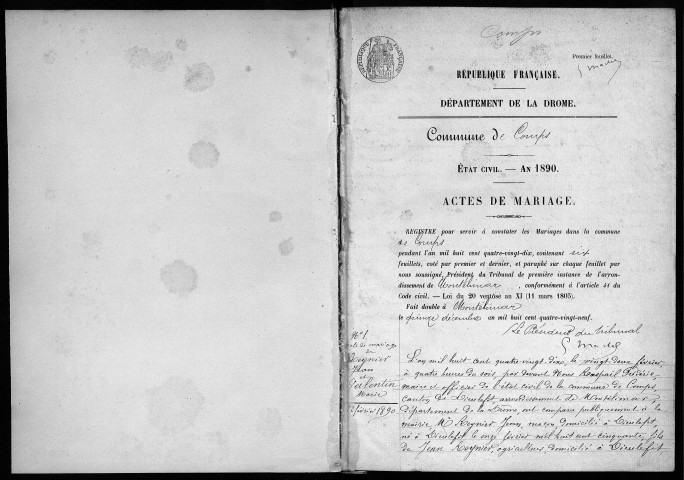 Comps
Premier feuillet.
RÉPUBLIQUE FRANÇAISE.
DÉPARTEMENT DE LA DROME.
Commune de Comps
ÉTAT CIVIL. — AN 1890.
ACTES DE MARIAGE.
REGISTRE pour servir à constater les Mariages dans la commune
de Comps
pendant l'an mil huit cent quatre-vingt-dix, contenant six
feuillets, coté par premier et dernier, et paraphé sur chaque feuillet par
nous soussigné, Président du Tribunal de première instance de l'arron-
dissement de Montélimar, conformément à l'article 41 du
Code civil. — Loi du 20 ventôse an XI (11 mars 1803).
Fait double à Montélimar
le quinze décembre an mil huit cent quatre-vingt-neuf.
Le Président du Tribunal
N° 1
de mariage
de
Reynier
Jean
et
Valentin
Marie
février 1890
L'an mil huit cent quatre-vingt-dix, le vingt deux février,
à quatre heures du soir, par devant Nous Raspail Frédéric
maire et officier de l'état civil de la commune de Comps,
canton de Dieulefit, arrondissement de Montélimar,
département de la Drôme, ont comparu publiquement à la
mairie, M. Reynier Jean, maçon, domicilié à Dieulefit
né à Dieulefit le onze février mil huit cent cinquante, fils
de Jean Reynier, agriculteur, domicilié à Dieulefit